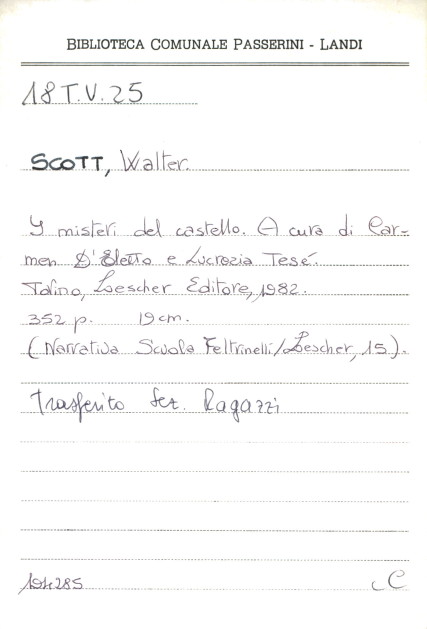 BIBLIOTECA COMUNALE PASSERINI - LANDI
18 T.V. 25
SCOTT, Walter.
I misteri del castello. A cura di Car-
men D'Eletto e Lucrezia Tesé.
Torino, Loescher Editore, 1982.
352 p. 19 cm.
(Narrativa Scuola Feltrinelli/Loescher, 15).
Trasferito Sez. Ragazzi
194285
C